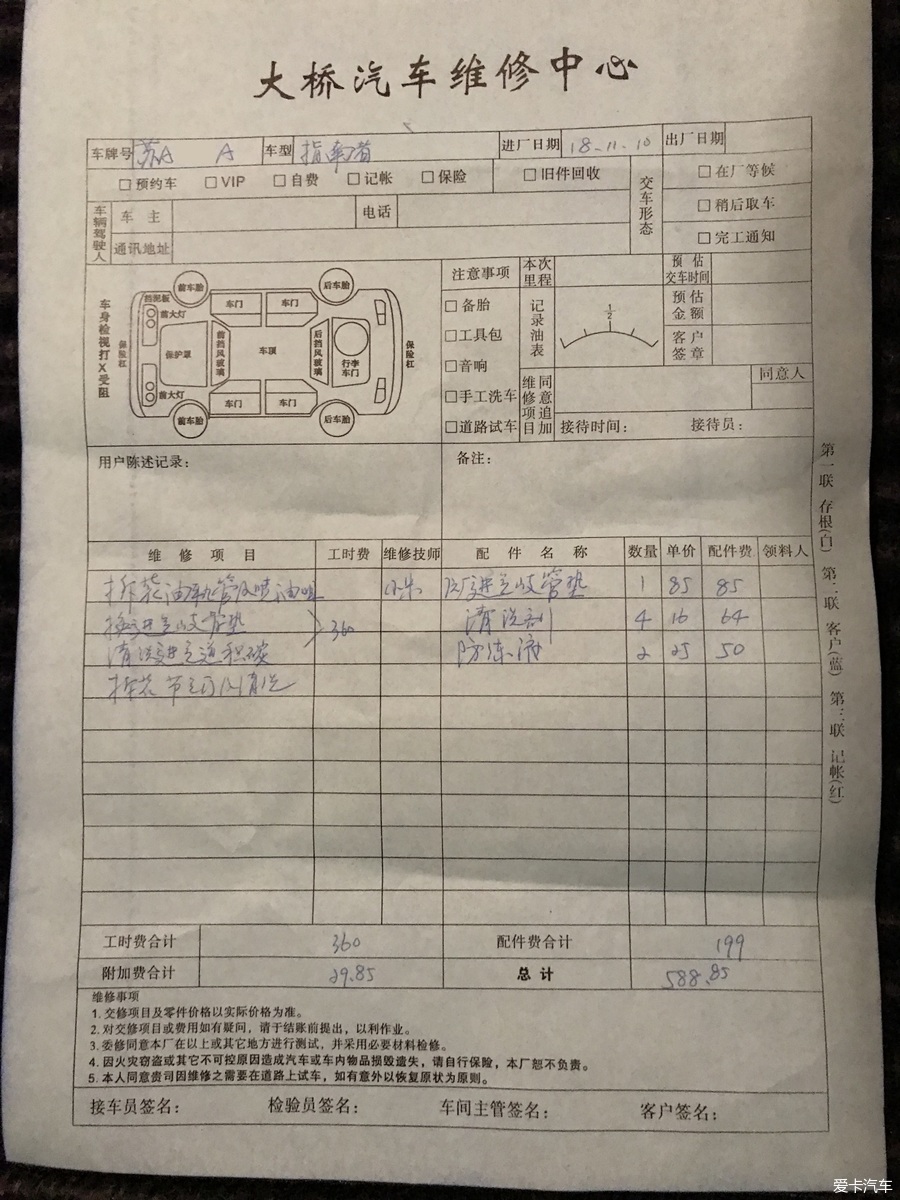 大桥汽车维修中心
车牌号 苏A A 车型 指南者 进厂日期 18-11-10 出厂日期
□预约车 □VIP □自费 □记帐 □保险 □旧件回收 交车形态 □在厂等候
□稍后取车
□完工通知
车辆驾驶人 车主 电话
通讯地址
车身检视打X受阻
前车胎 后车胎
挡泥板 前大灯 车门 车门
保险杠 保护罩 前挡风玻璃 车顶 后挡风玻璃 行李车门 保险杠
前大灯 车门 车门
前车胎 后车胎
注意事项 本次里程 预估交车时间
□备胎 记录油表 1/2 预估金额
□工具包 客户签章
□音响
□手工洗车 维修项目 同意追加 同意人
□道路试车 接待时间： 接待员：
用户陈述记录： 备注：
维修项目 工时费 维修技师 配件名称 数量 单价 配件费 领料人
拆装油轨管及喷油嘴 进气歧管垫 1 85 85
换进气歧管垫 360 清洗剂 4 16 64
清洗进气道积碳 防冻液 2 25 50
拆装节气门及清洗
工时费合计 360 配件费合计 199
附加费合计 29.85 总计 588.85
维修事项
1.交修项目及零件价格以实际价格为准。
2.对交修项目或费用如有疑问，请于结账前提出，以利作业。
3.委修同意本厂在以上或其它地方进行测试，并采用必要材料检修。
4.因火灾窃盗或其它不可控原因造成汽车或车内物品损毁遗失，请自行保险，本厂恕不负责。
5.本人同意贵司因维修之需要在道路上试车，如有意外以恢复原状为原则。
接车员签名： 检验员签名： 车间主管签名： 客户签名：
第一联 存根(白) 第二联 客户(蓝) 第三联 记帐(红)
爱卡汽车